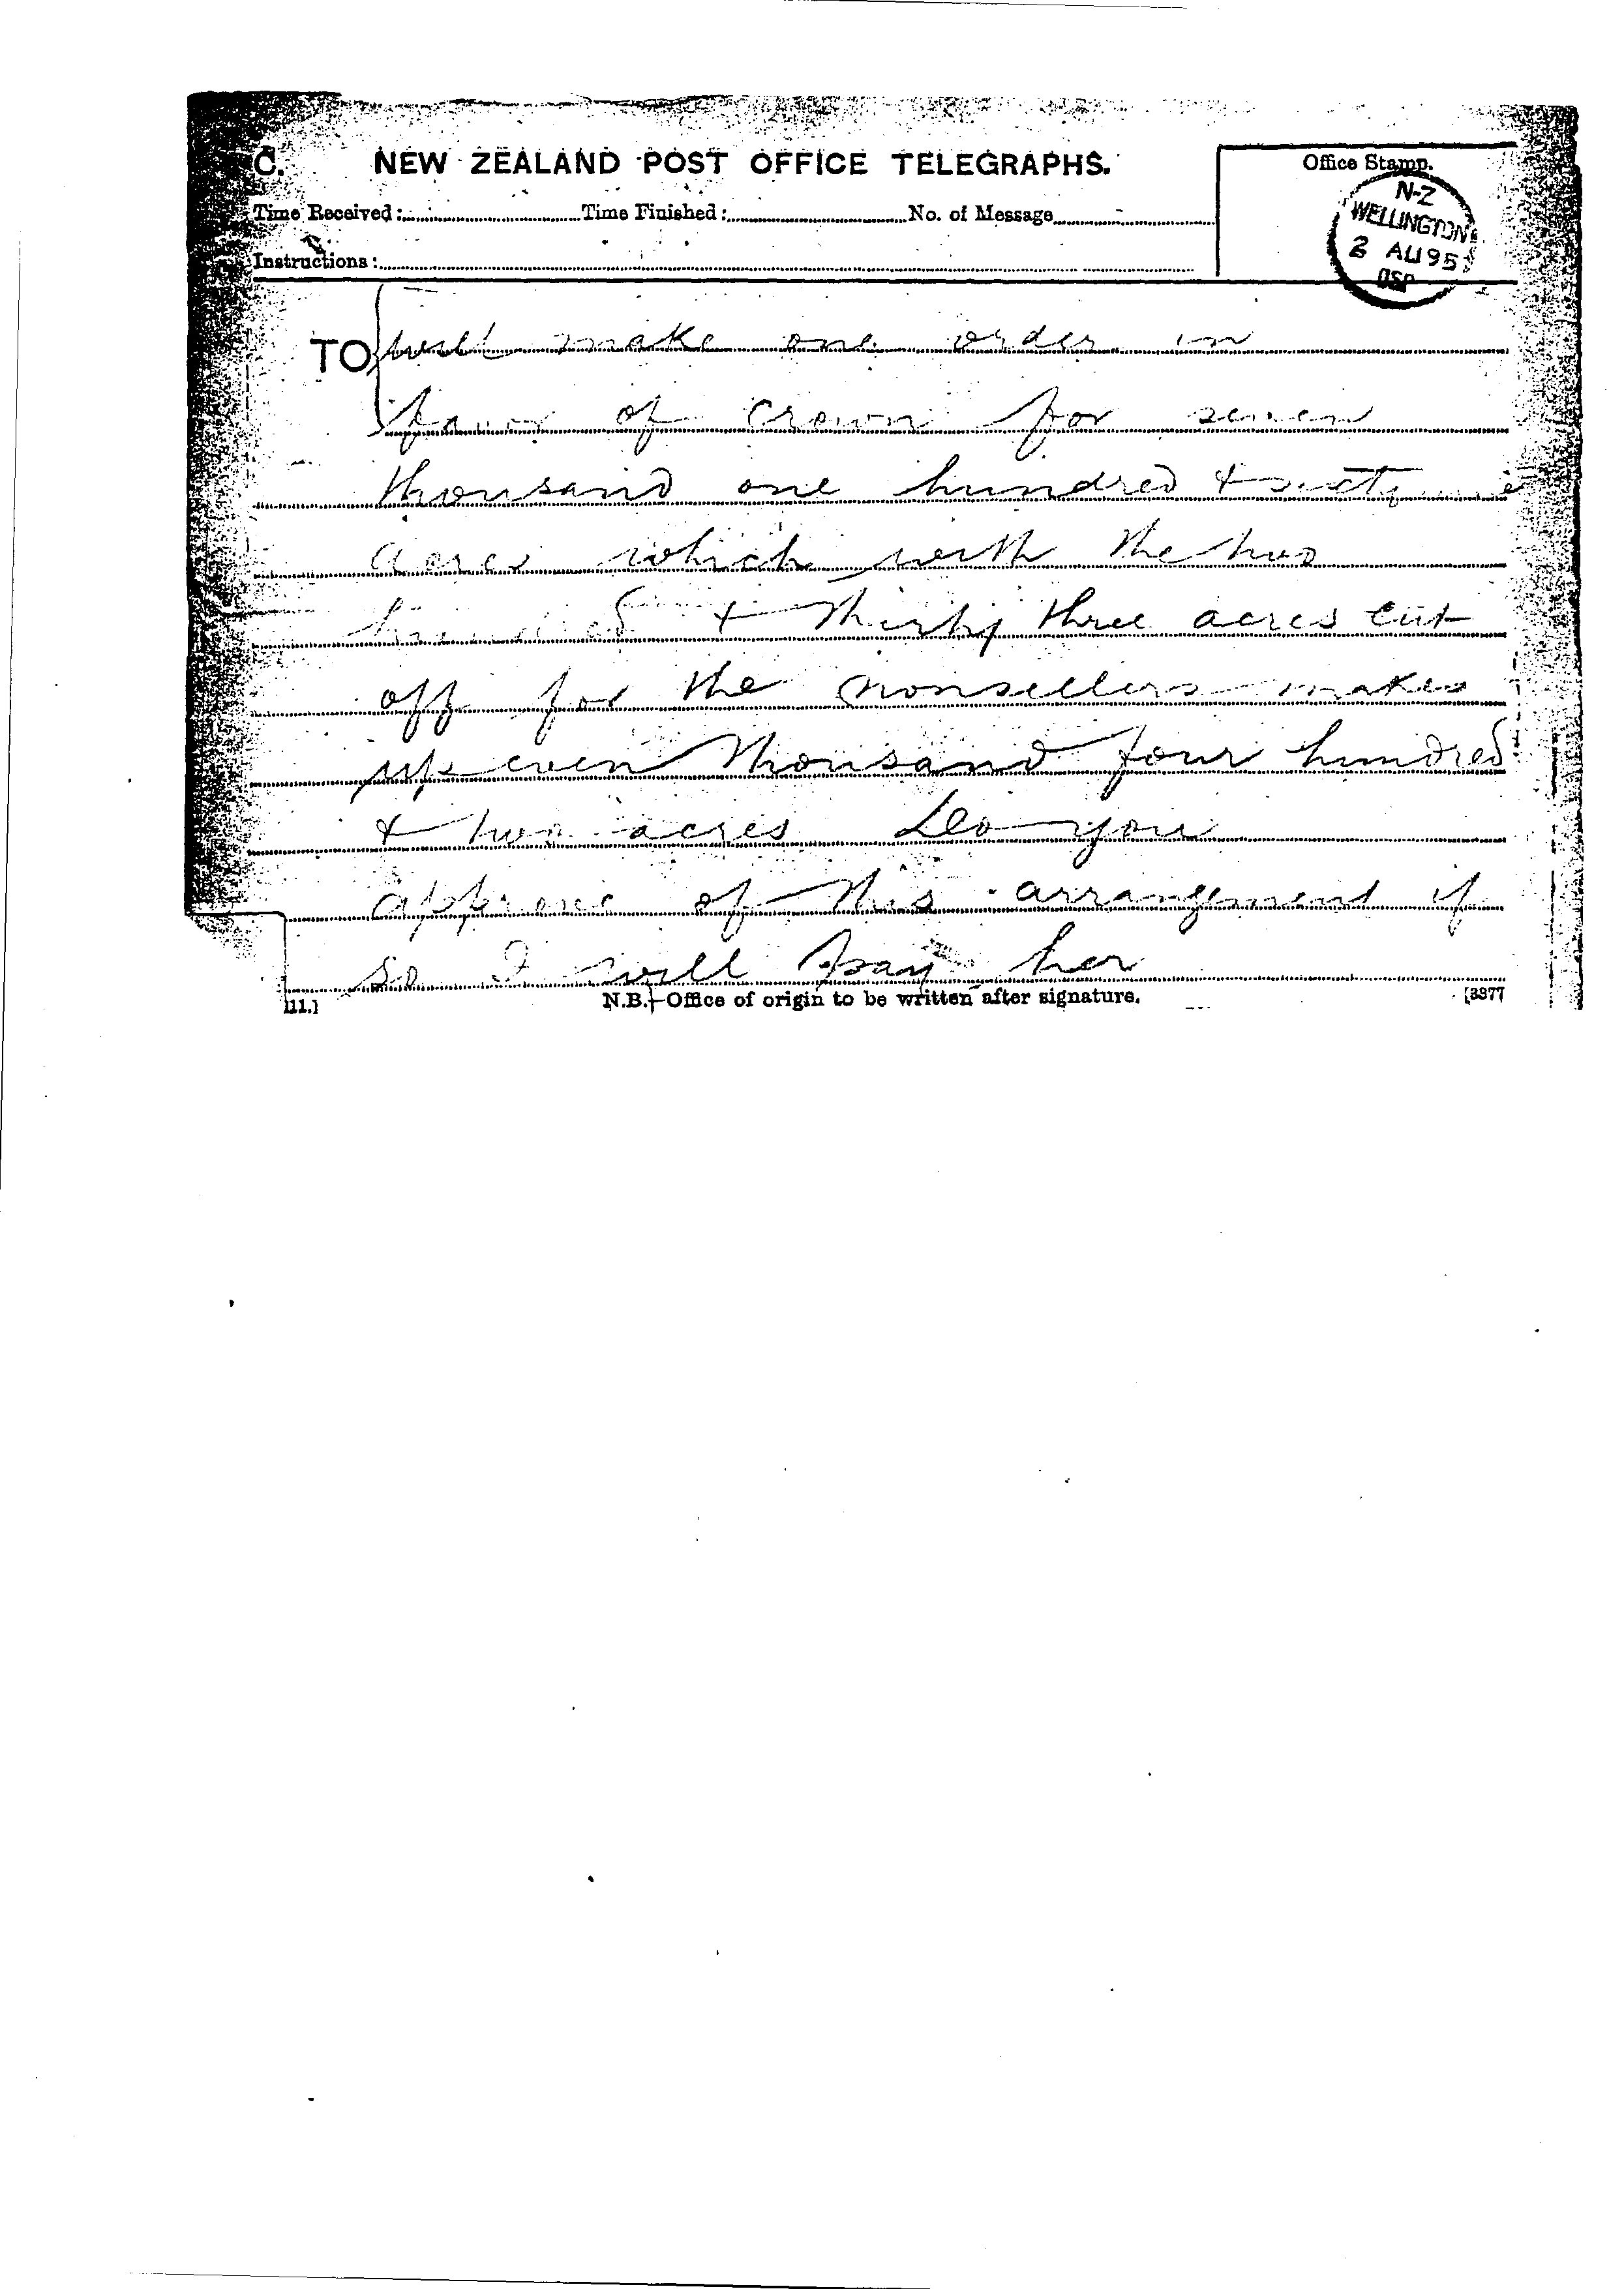 C. NEW ZEALAND POST OFFICE TELEGRAPHS.
Office Stamp.
N-Z
WELLINGTON
2 AU 95
Time Received: Time Finished: No. of Message
Instructions:
TO will make one order in
favor of Crown for seven
thousand one hundred & sixty nine
acres which with the two
hundred & thirty three acres cut
off for the nonsellers makes
up even thousand four hundred
& two acres Do you
approve of this arrangement if
so I will pay her
11.] N.B.—Office of origin to be written after signature. [337